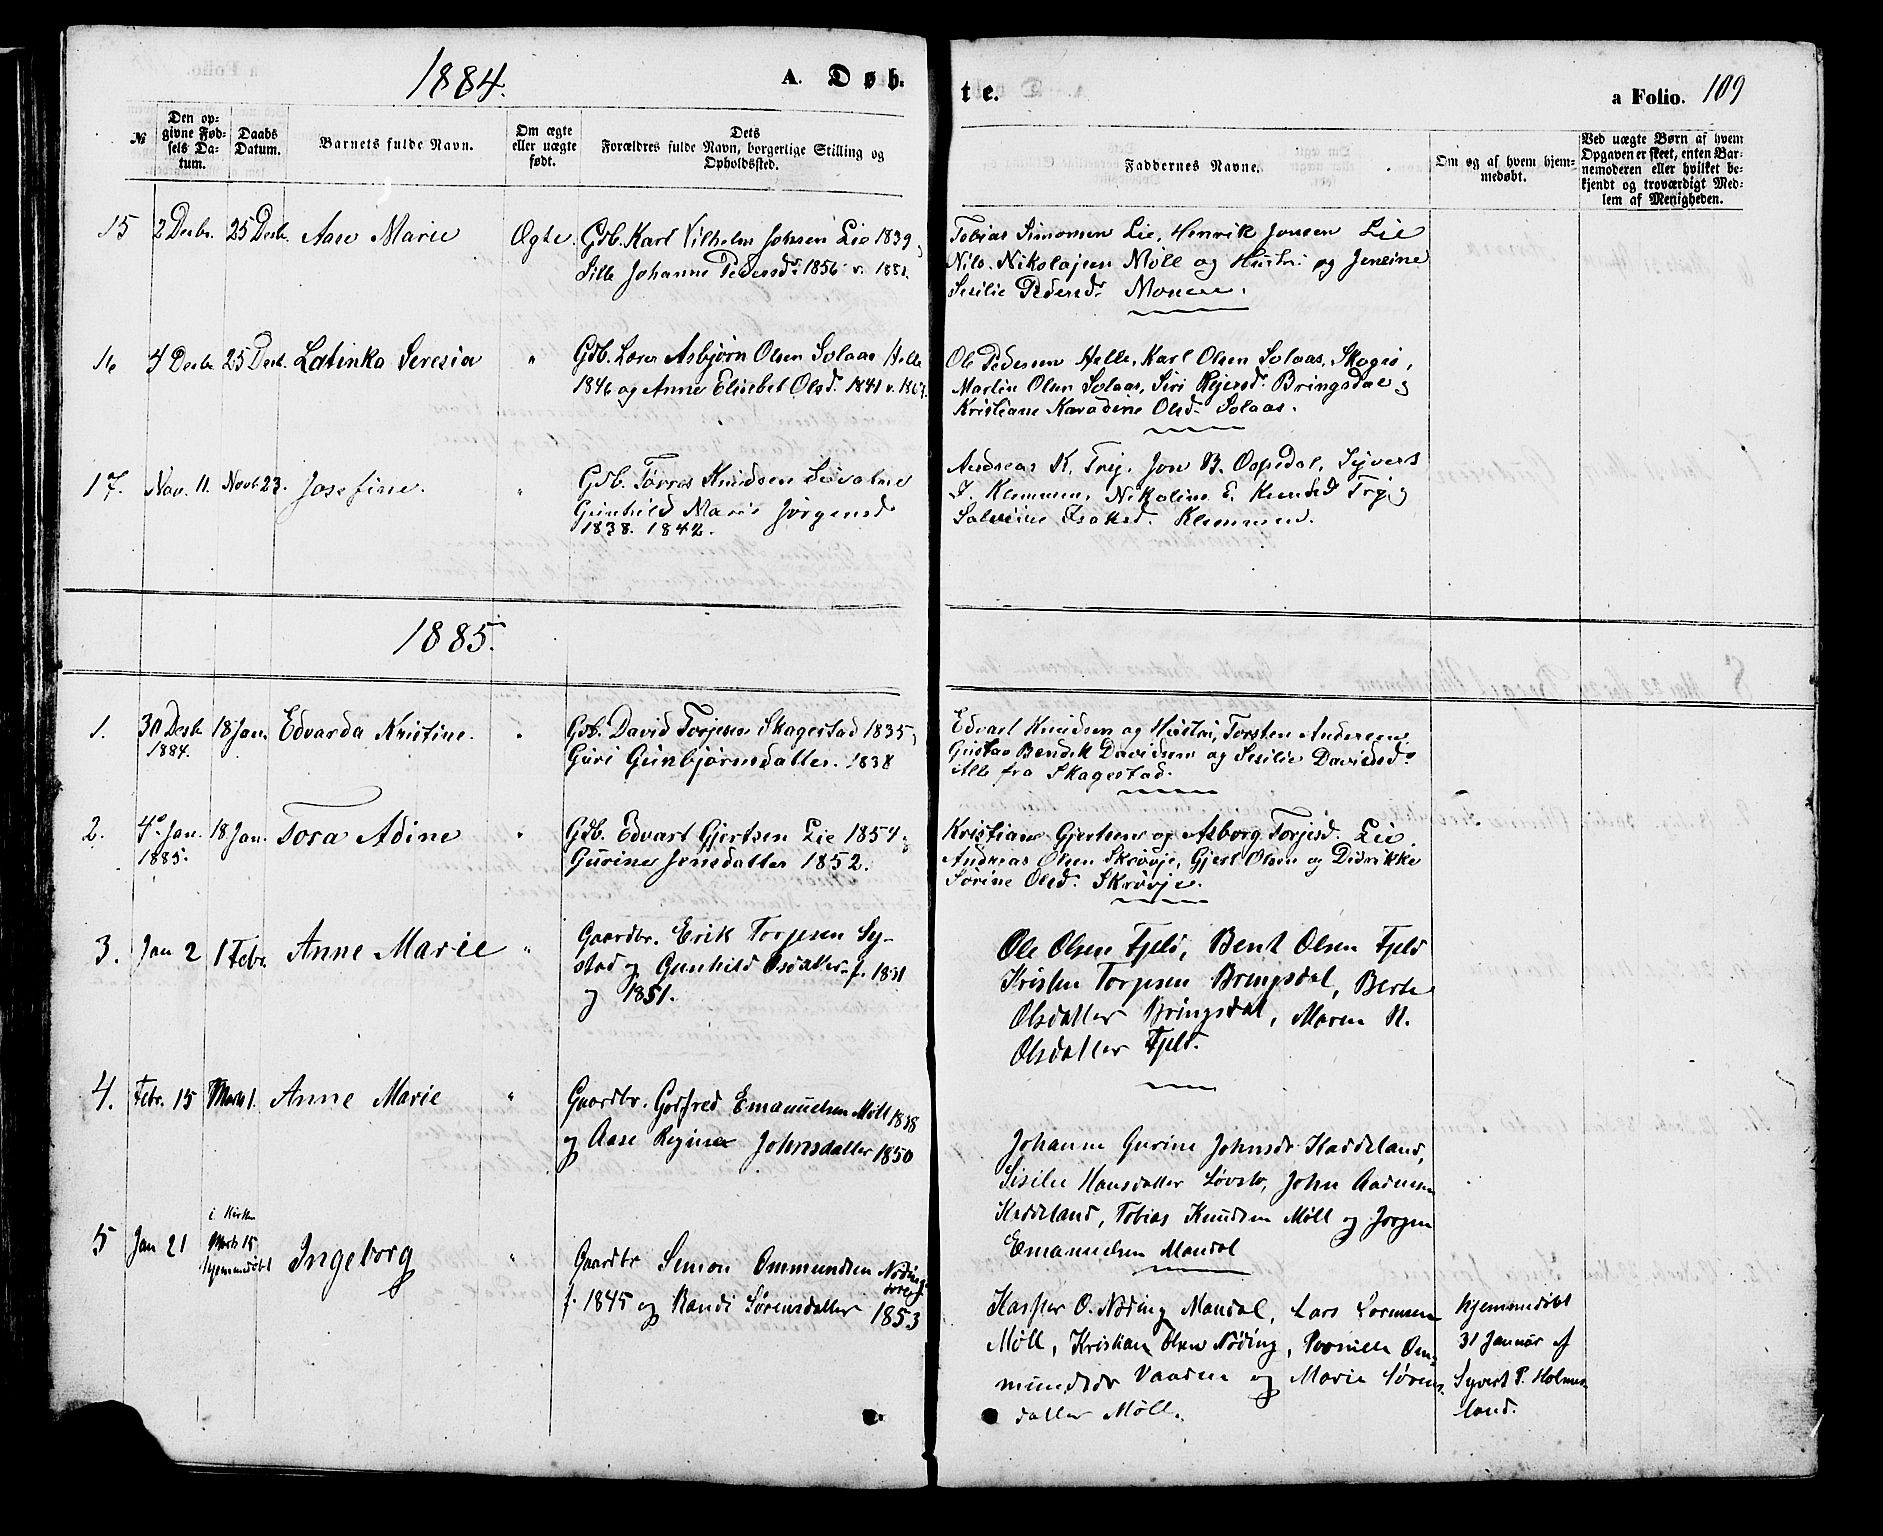 1884.
A. Døb-
te.
a Folio. 109
№
Den op-
givne Fød-
sels Da-
tum.
Daabs
Datum.
Barnets fulde Navn.
Om ægte
eller uægte
født.
Dets
Forældres fulde Navn, borgerlige Stilling og
Opholdssted.
Faddernes Navne.
Om og af hvem hjem-
medøbt.
Ved uægte Børn af hvem
Opgaven er skeet, enten Bar-
nemoderen eller hvilket be-
kjendt og troværdigt Med-
lem af Menigheden.
15 2 Decbr. 25 Decb. Aase Marie Ægte
Gdb. Karl Vilhelm Johnsen Lie 1839
Sille Johanne Pedersd. 1856 v. 1881.
Tobias Simonsen Lie, Henrik Jonsen Lie
Nils Nikolajsen Møll og Hustru og Jensine
Sesilie Pedersd. Monen.
16 4 Decbr 25 Decb. Latinka Seresia "
Gdb. Lærer Asbjørn Olsen Solaas Helle
1846 og Anne Elisebet Olsd. 1841 v. 1867.
Ole Pedersen Helle, Karl Olsen Solaas, Skogsø,
Martin Olsen Solaas, Siri Rejersd. Bringsdal og
Kristiane Karadine Olsd. Solaas.
17. Nov. 11. Novb. 23. Josefine. "
Gdb. Tørres Knudsen
Gunhild Marie Jørgensd
1838. 1842.
Andreas K. Try, Jon B. Opsedal, Syvert
J. Klemmen, Nikoline E. Knudsd Try og
Salvine Isaksd. Klemmen.
1885.
1. 30 Decb. 18 Jan. Edvarda Kristine. "
1884.
Gdb. David Torjesen Skagestad 1835,
Guri Gunbjørnsdatter. 1838
Edvart Knudsen og Hustru, Torsten Andersen
Gustav Bendik Davidsen og Sesilie Davidsd.
Alle fra Skagestad.
2. 4. Jan. 18. Jan. Tora Adine "
1885.
Gdb. Edvart Gjertsen Lie 1854 og
Gurine Jensdatter 1852.
Kristian Gjertsen og Asborg Torjesd. Lie.
Andreas Olsen Skrøvje, Gjert Olsen og Didrikke
Sørine Olsd. Skrøvje.
3. Jan 2 1 Febr. Anne Marie "
Gaardbr. Erik Torjesen Sy-
stad og Gunhild Osdatter f. 1831
og 1851.
Ole Olsen Fjeld, Bent Olsen Fjeld
Kristen Torjesen Bringsdal, Berte
Olsdatter Bringsdal, Maren N.
Olsdatter Fjeld.
4. Febr. 15 Marts 1. Anne Marie "
Gaardbr. Godfred Emanuelsen Møll 1838
og Aase Regine Johnsdatter 1850
Johanne Gurine Johnsdr Haddeland,
Sisilie Hansdatter Løvsto, John Aadnesen
Haddeland, Tobias Knudsen Møll og Jørgen
Emanuelsen Mandal
5 Jan 21 i Kirken
Marts 15
hjemmedøbt Ingeborg "
Gaardbr Simon Ommundsen Nøding
f. 1845 og Randi Sørensdatter 1853
Kasper O. Nøding Mandal, Lars Sørensen
Møll, Kristian Olsen Nøding, Pernille Om-
mundsdr Vaaden og Marie Sørens-
datter Møll.
hjemmedøbt
31 Januar af
Syvert P. Holmes-
land.